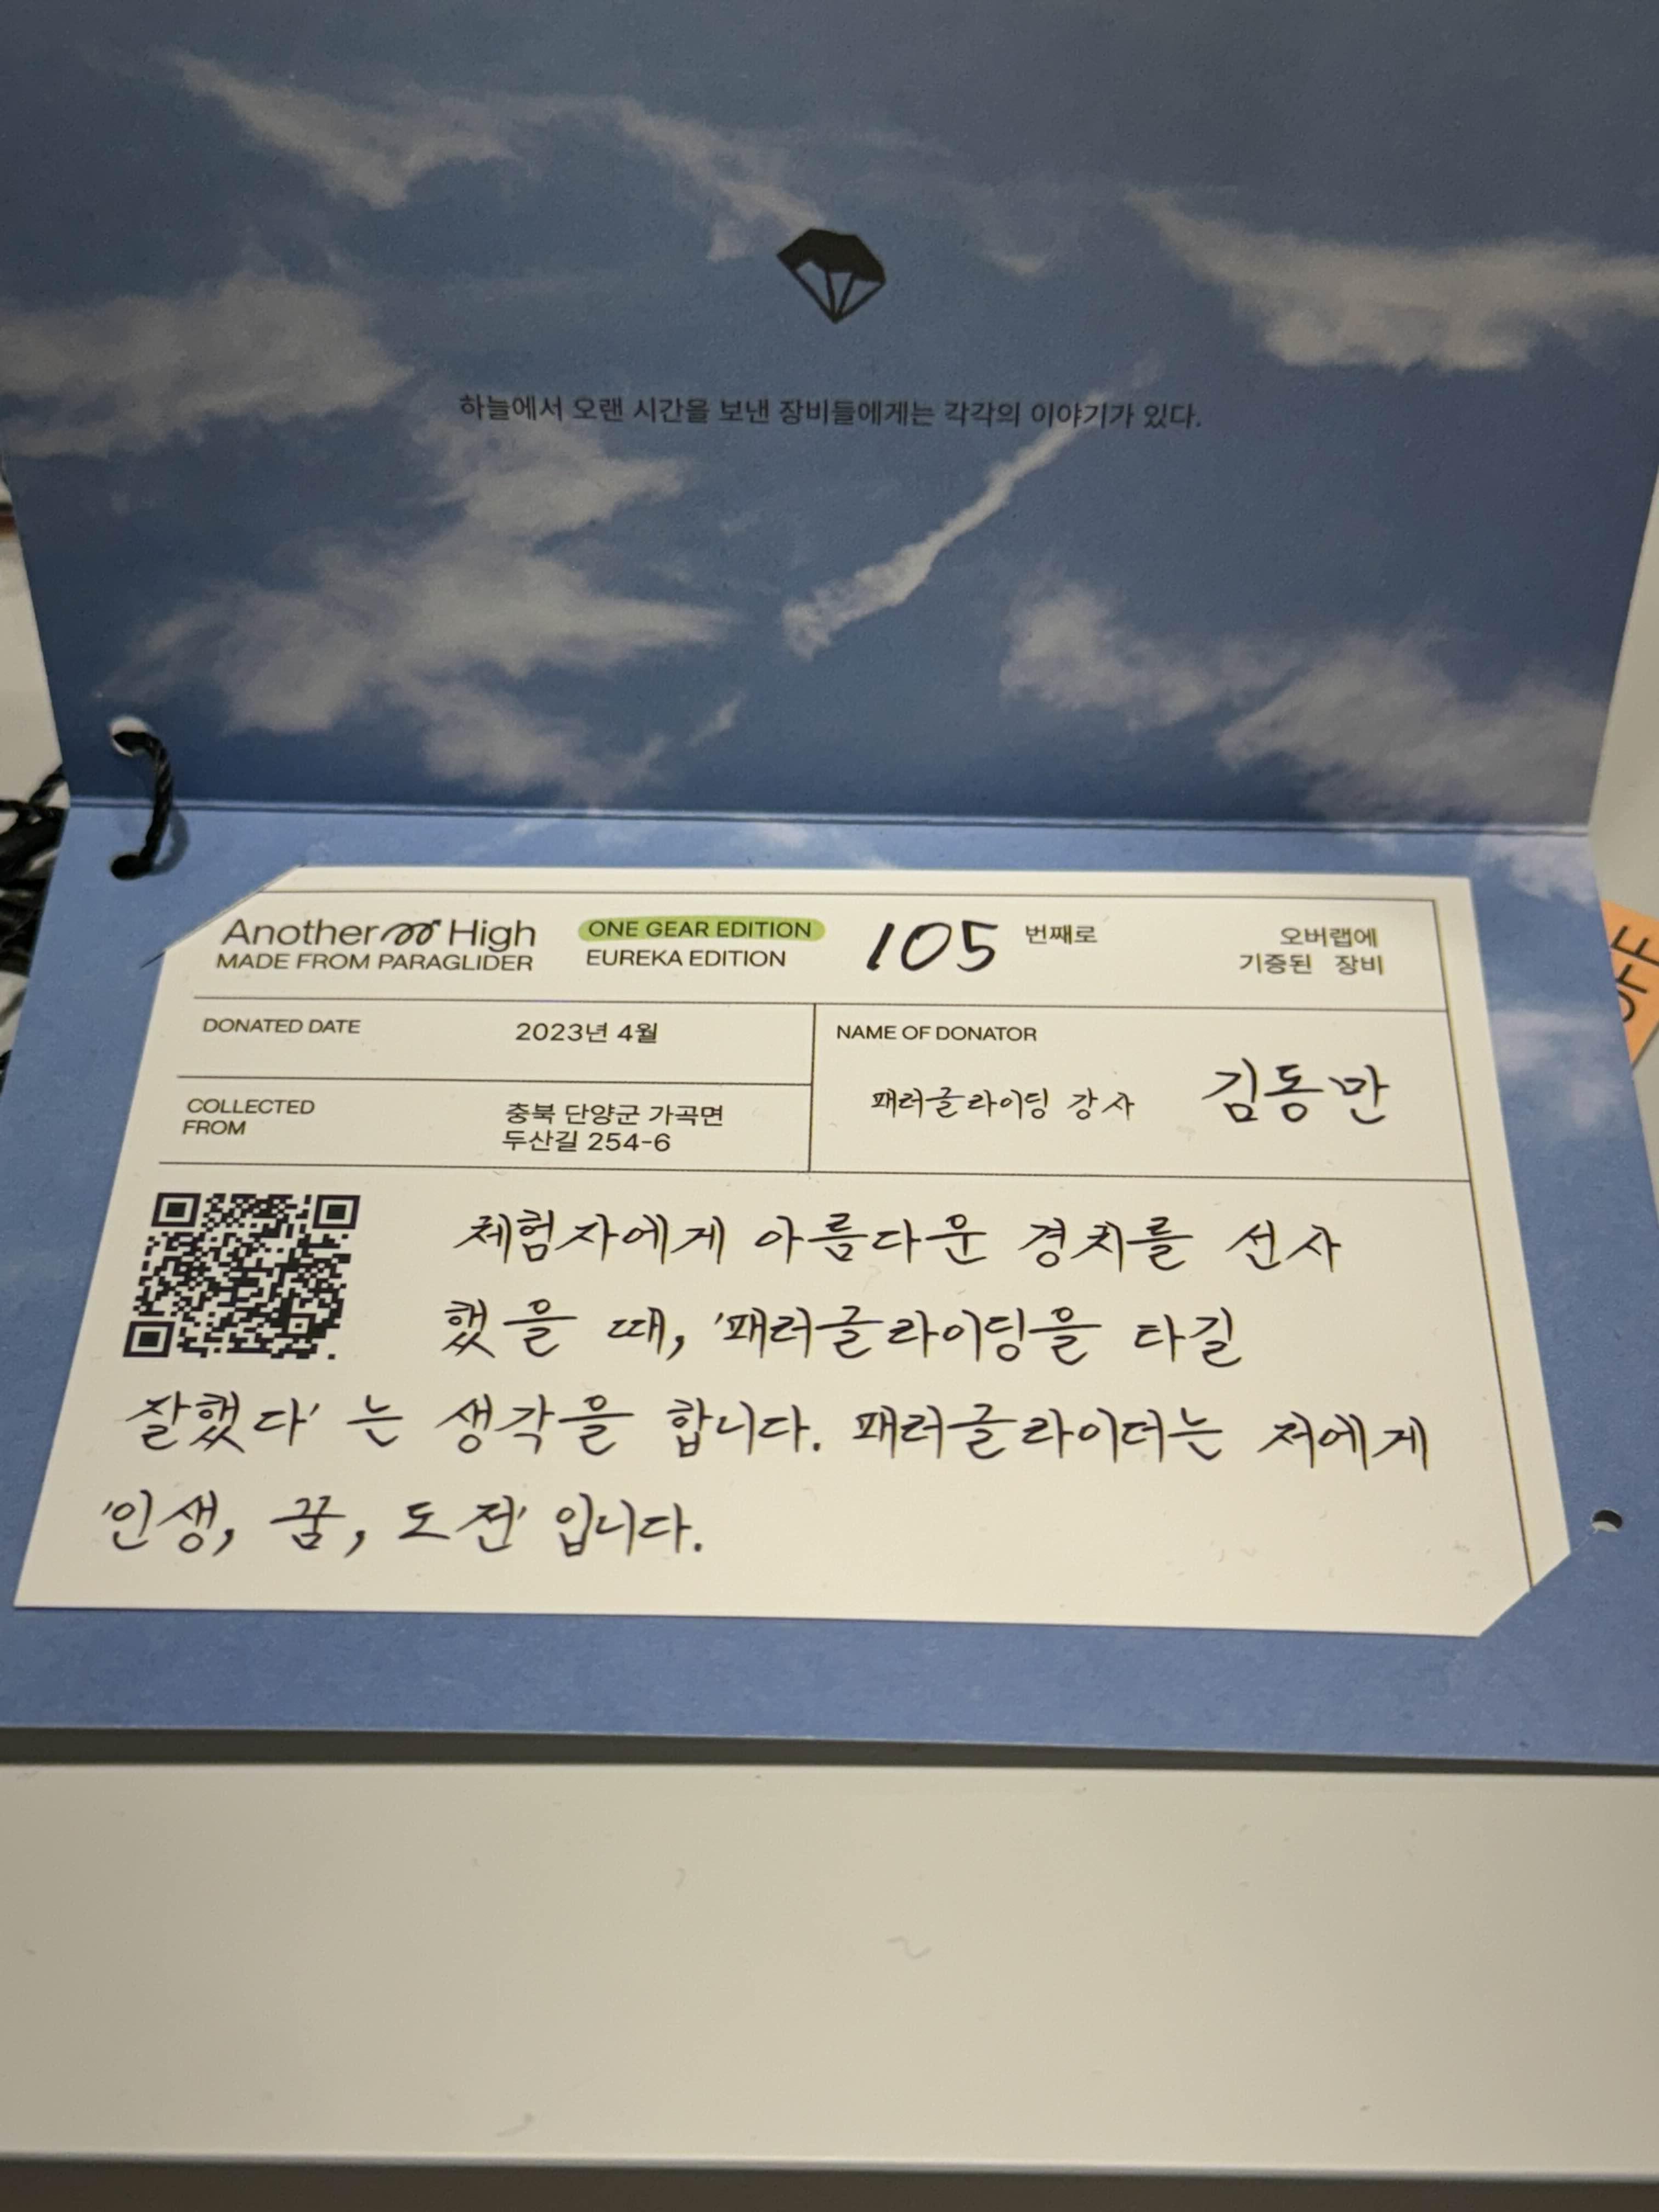 하늘에서 오랜 시간을 보낸 장비들에게는 각각의 이야기가 있다.
Another High
MADE FROM PARAGLIDER
ONE GEAR EDITION
EUREKA EDITION
105 번째로
오버랩에
기증된 장비
DONATED DATE
2023년 4월
NAME OF DONATOR
패러글라이딩 강사 김동만
COLLECTED
FROM
충북 단양군 가곡면
두산길 254-6
체험자에게 아름다운 경치를 선사
했을 때, '패러글라이딩을 타길
잘했다' 는 생각을 합니다. 패러글라이더는 저에게
'인생, 꿈, 도전' 입니다.